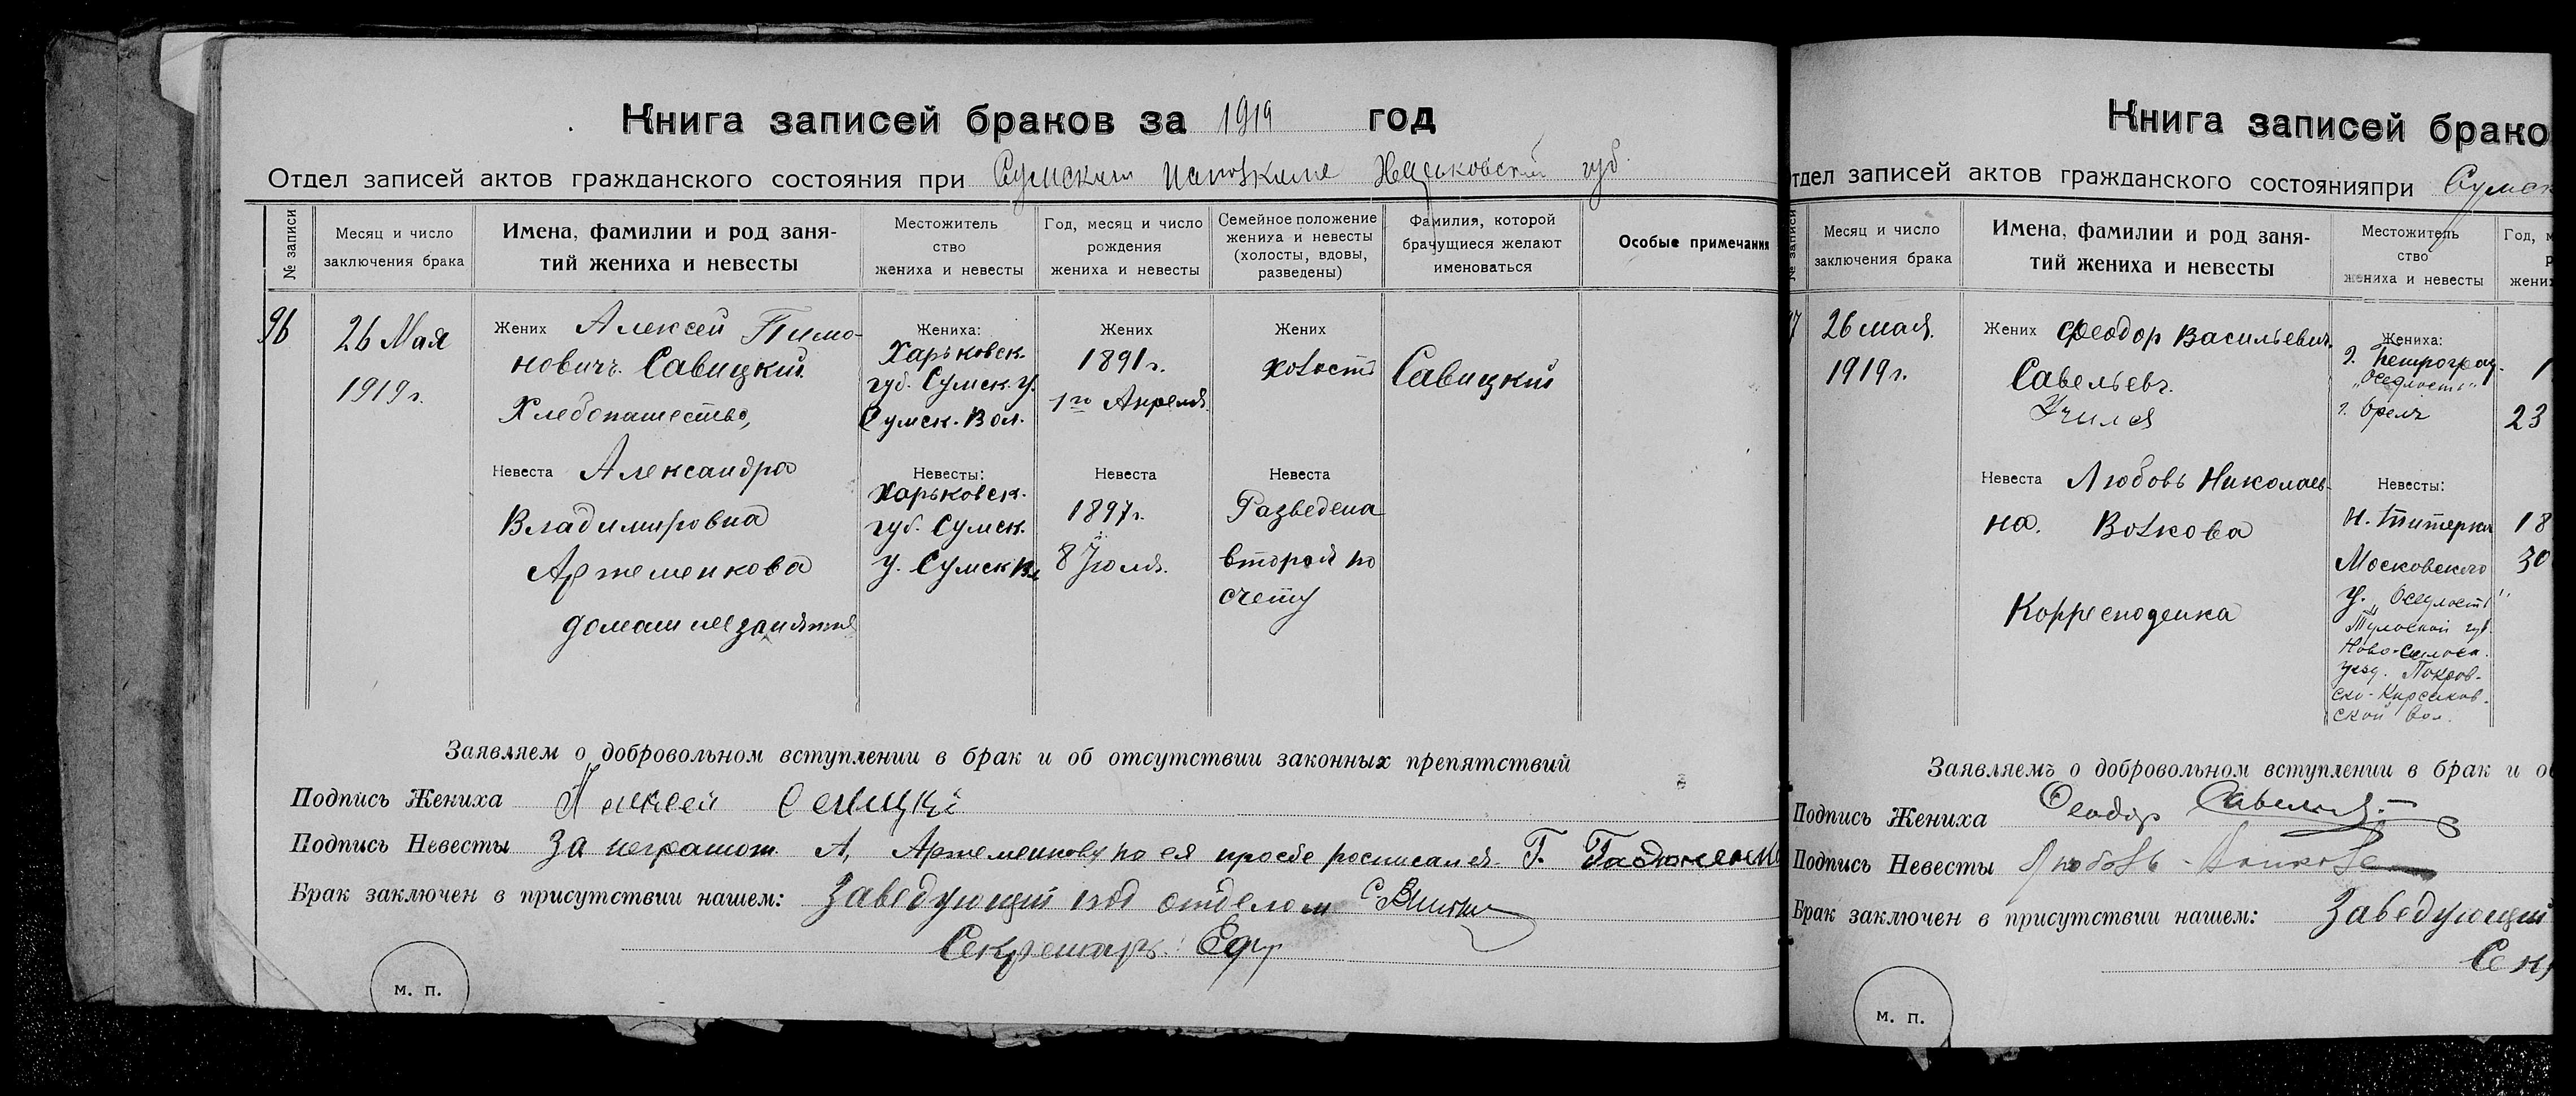 Книга записей браков за 1919 год
Отдел записей актов гражданского состояния при Сумском Исполкоме Харьковской губ.
№ записи
Месяц и число заключения брака
Имена, фамилии и род занятий жениха и невесты
Местожительство жениха и невесты
Год, месяц и число рождения жениха и невесты
Семейное положение жениха и невесты (холосты, вдовы, разведены)
Фамилия, которой брачущиеся желают именоваться
Особые примечания
96
26 Мая
1919 г.
Жених Алексей Тимо-
новичъ Савицкий
Хлебопашество,
Жениха:
Харьковск.
губ. Сумск. у.
Сумск. Вол.
Жених
1891 г.
1го Апреля.
Жених
холост
Савицкий
Невеста Александра
Владимировна
Артеменкова
домашнее занятие
Невесты:
Харьковск.
губ. Сумск.
у. Сумск Вл
Невеста
1897 г.
8 Июля.
Невеста
Разведена
вторая по
счету
Заявляем о добровольном вступлении в брак и об отсутствии законных препятствий
Подпись Жениха Алексей Савицкий
Подпись Невесты За неграмот А, Артеменкову по ея просбе росписался Г.
Брак заключен в присутствии нашем: Заведующий под отделом
Секретарь:
м. п.
Книга записей брако
тдел записей актов гражданского состоянияпри Сумск
№ записи
Месяц и число заключения брака
Имена, фамилии и род занятий жениха и невесты
Местожительство жениха и невесты
Год, м
р
жених
97
26 мая.
1919 г.
Жених Феодор Васильевич.
Савельевъ.
Учился
Жениха:
г. Петроград.
"Оседлость"
г. Орелъ
1
23
Невеста Любовь Николаев-
на. Волкова
Корресподенка
Невесты:
Московского
у. "Оседлость"
Тульской губ.
Ново-Сильск.
уезд. Покров-
ско-Корсаков-
ской вол.
18
30
Заявляемъ о добровольном вступлении в брак и об
Подпись Жениха Феодор Савельев
Подпись Невесты Любовь Волкова
Брак заключен в присутствии нашем: Заведующий
Секр
м. п.